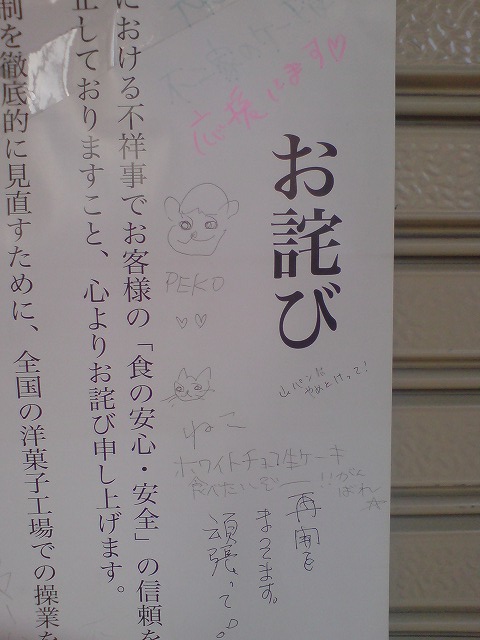 お詫び
における不祥事でお客様の「食の安心・安全」の信頼を
止しておりますこと、心よりお詫び申し上げます。
制を徹底的に見直すために、全国の洋菓子工場での操業を
応援してます♡
PEKO
♡♡
ねこ
山パンは
やめとけって!
ホワイトチョコ生ケーキ
食べたいぞー!!
がん
ばれ☆
再開を
まってます。
頑張って